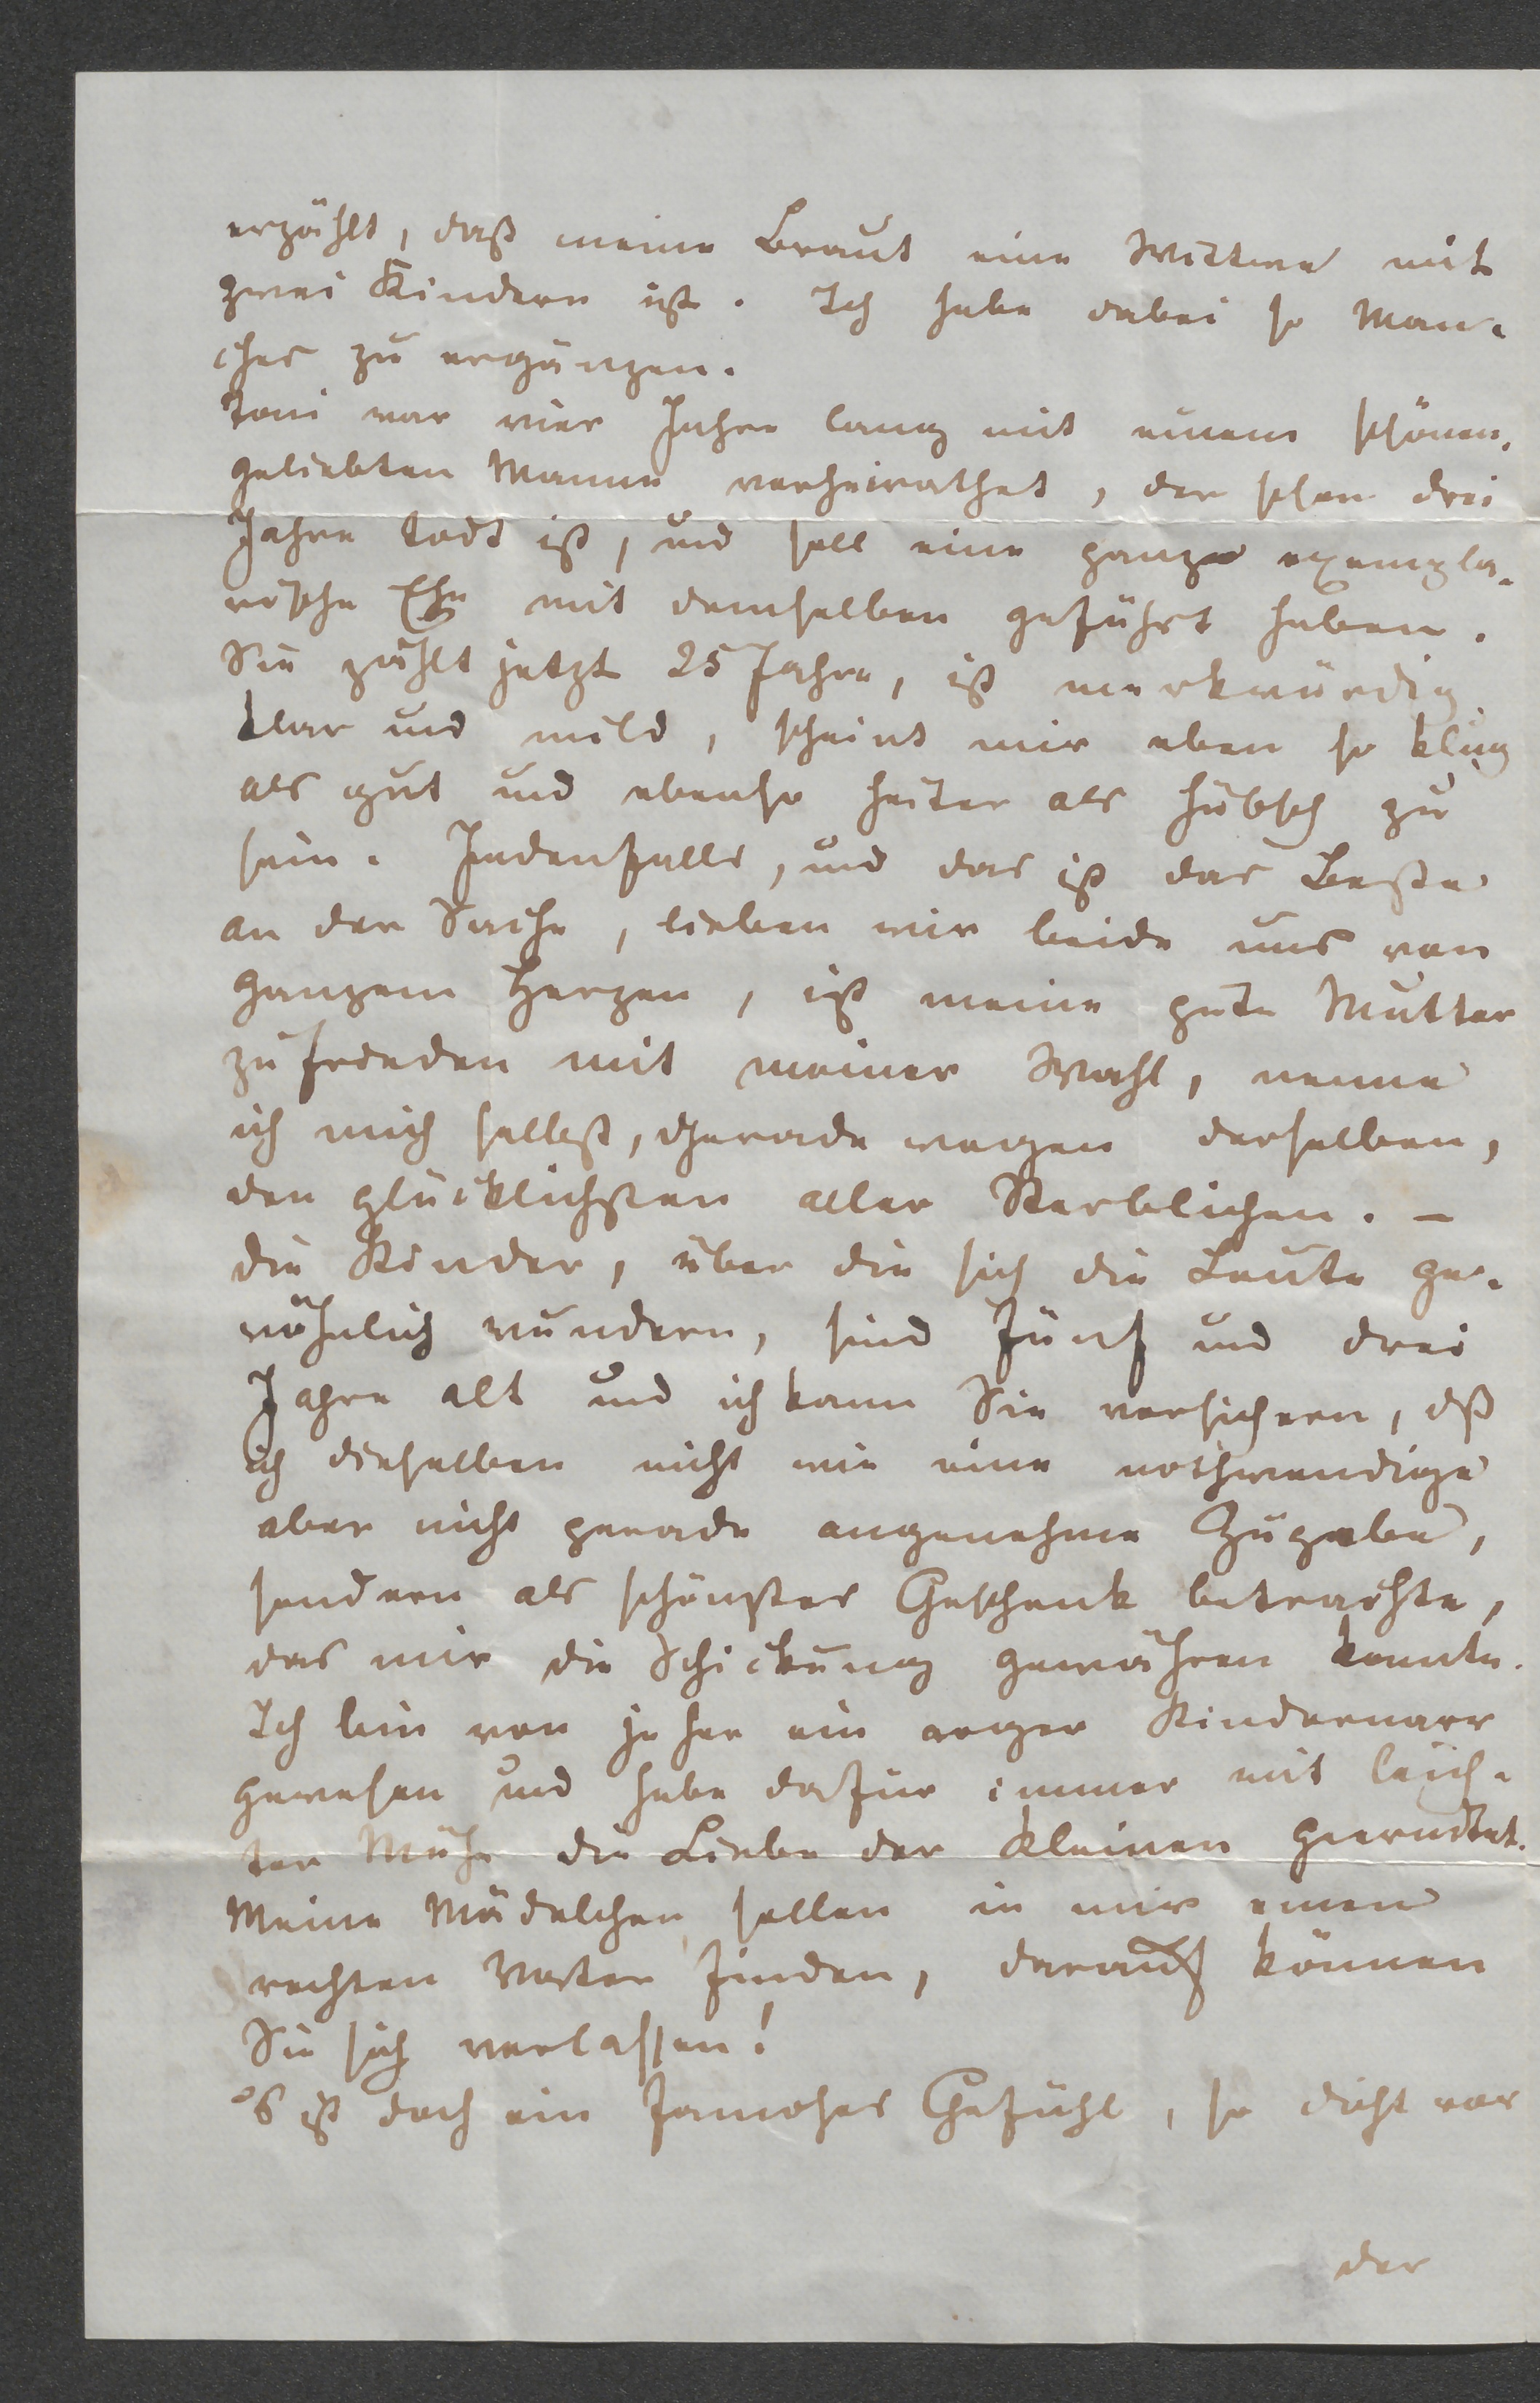 erzählt, daß meine Braut eine Wittwe mit
zwei Kindern ist. Ich habe dabei so Man-
ches zu ergänzen.
Toni war vier Jahre lang mit einem schönen,
geliebten Manne verheirathet, der schon drei
Jahre todt ist, und soll eine ganz exempla-
rische Ehe mit demselben geführt haben.
Sie zählt jetzt 25 Jahre, ist merkwürdig
klar und mild, scheint mir eben so klug
als gut und ebenso heiter als hübsch zu
sein. Jedenfalls, und das ist das Beste
an der Sache, lieben wir beide uns von
ganzem Herzen, ist meine gute Mutter
zufrieden mit meiner Wahl, nenne
ich mich selbst, gerade wegen derselben,
den glücklichsten aller Sterblichen. –
die Kinder, über die sich die Leute ge-
wöhnlich wundern, sind fünf und drei
Jahre alt und ich kann Sie versichern, dß
ich dieselben nicht wie eine nothwendige
aber nicht gerade angenehme Zugabe,
sondern als schönstes Geschenk betrachte,
das mir die Schickung gewähren konnte.
Ich bin von je her ein arger Kindernarr
gewesen und habe dafür immer mit leich-
ter Mühe die Liebe der Kleinen geerndtet.
Meine Mädelchen sollen in mir einen
rechten Vater finden, darauf können
Sie sich verlassen!
's ist doch ein famoses Gefühl, so dicht vor
der